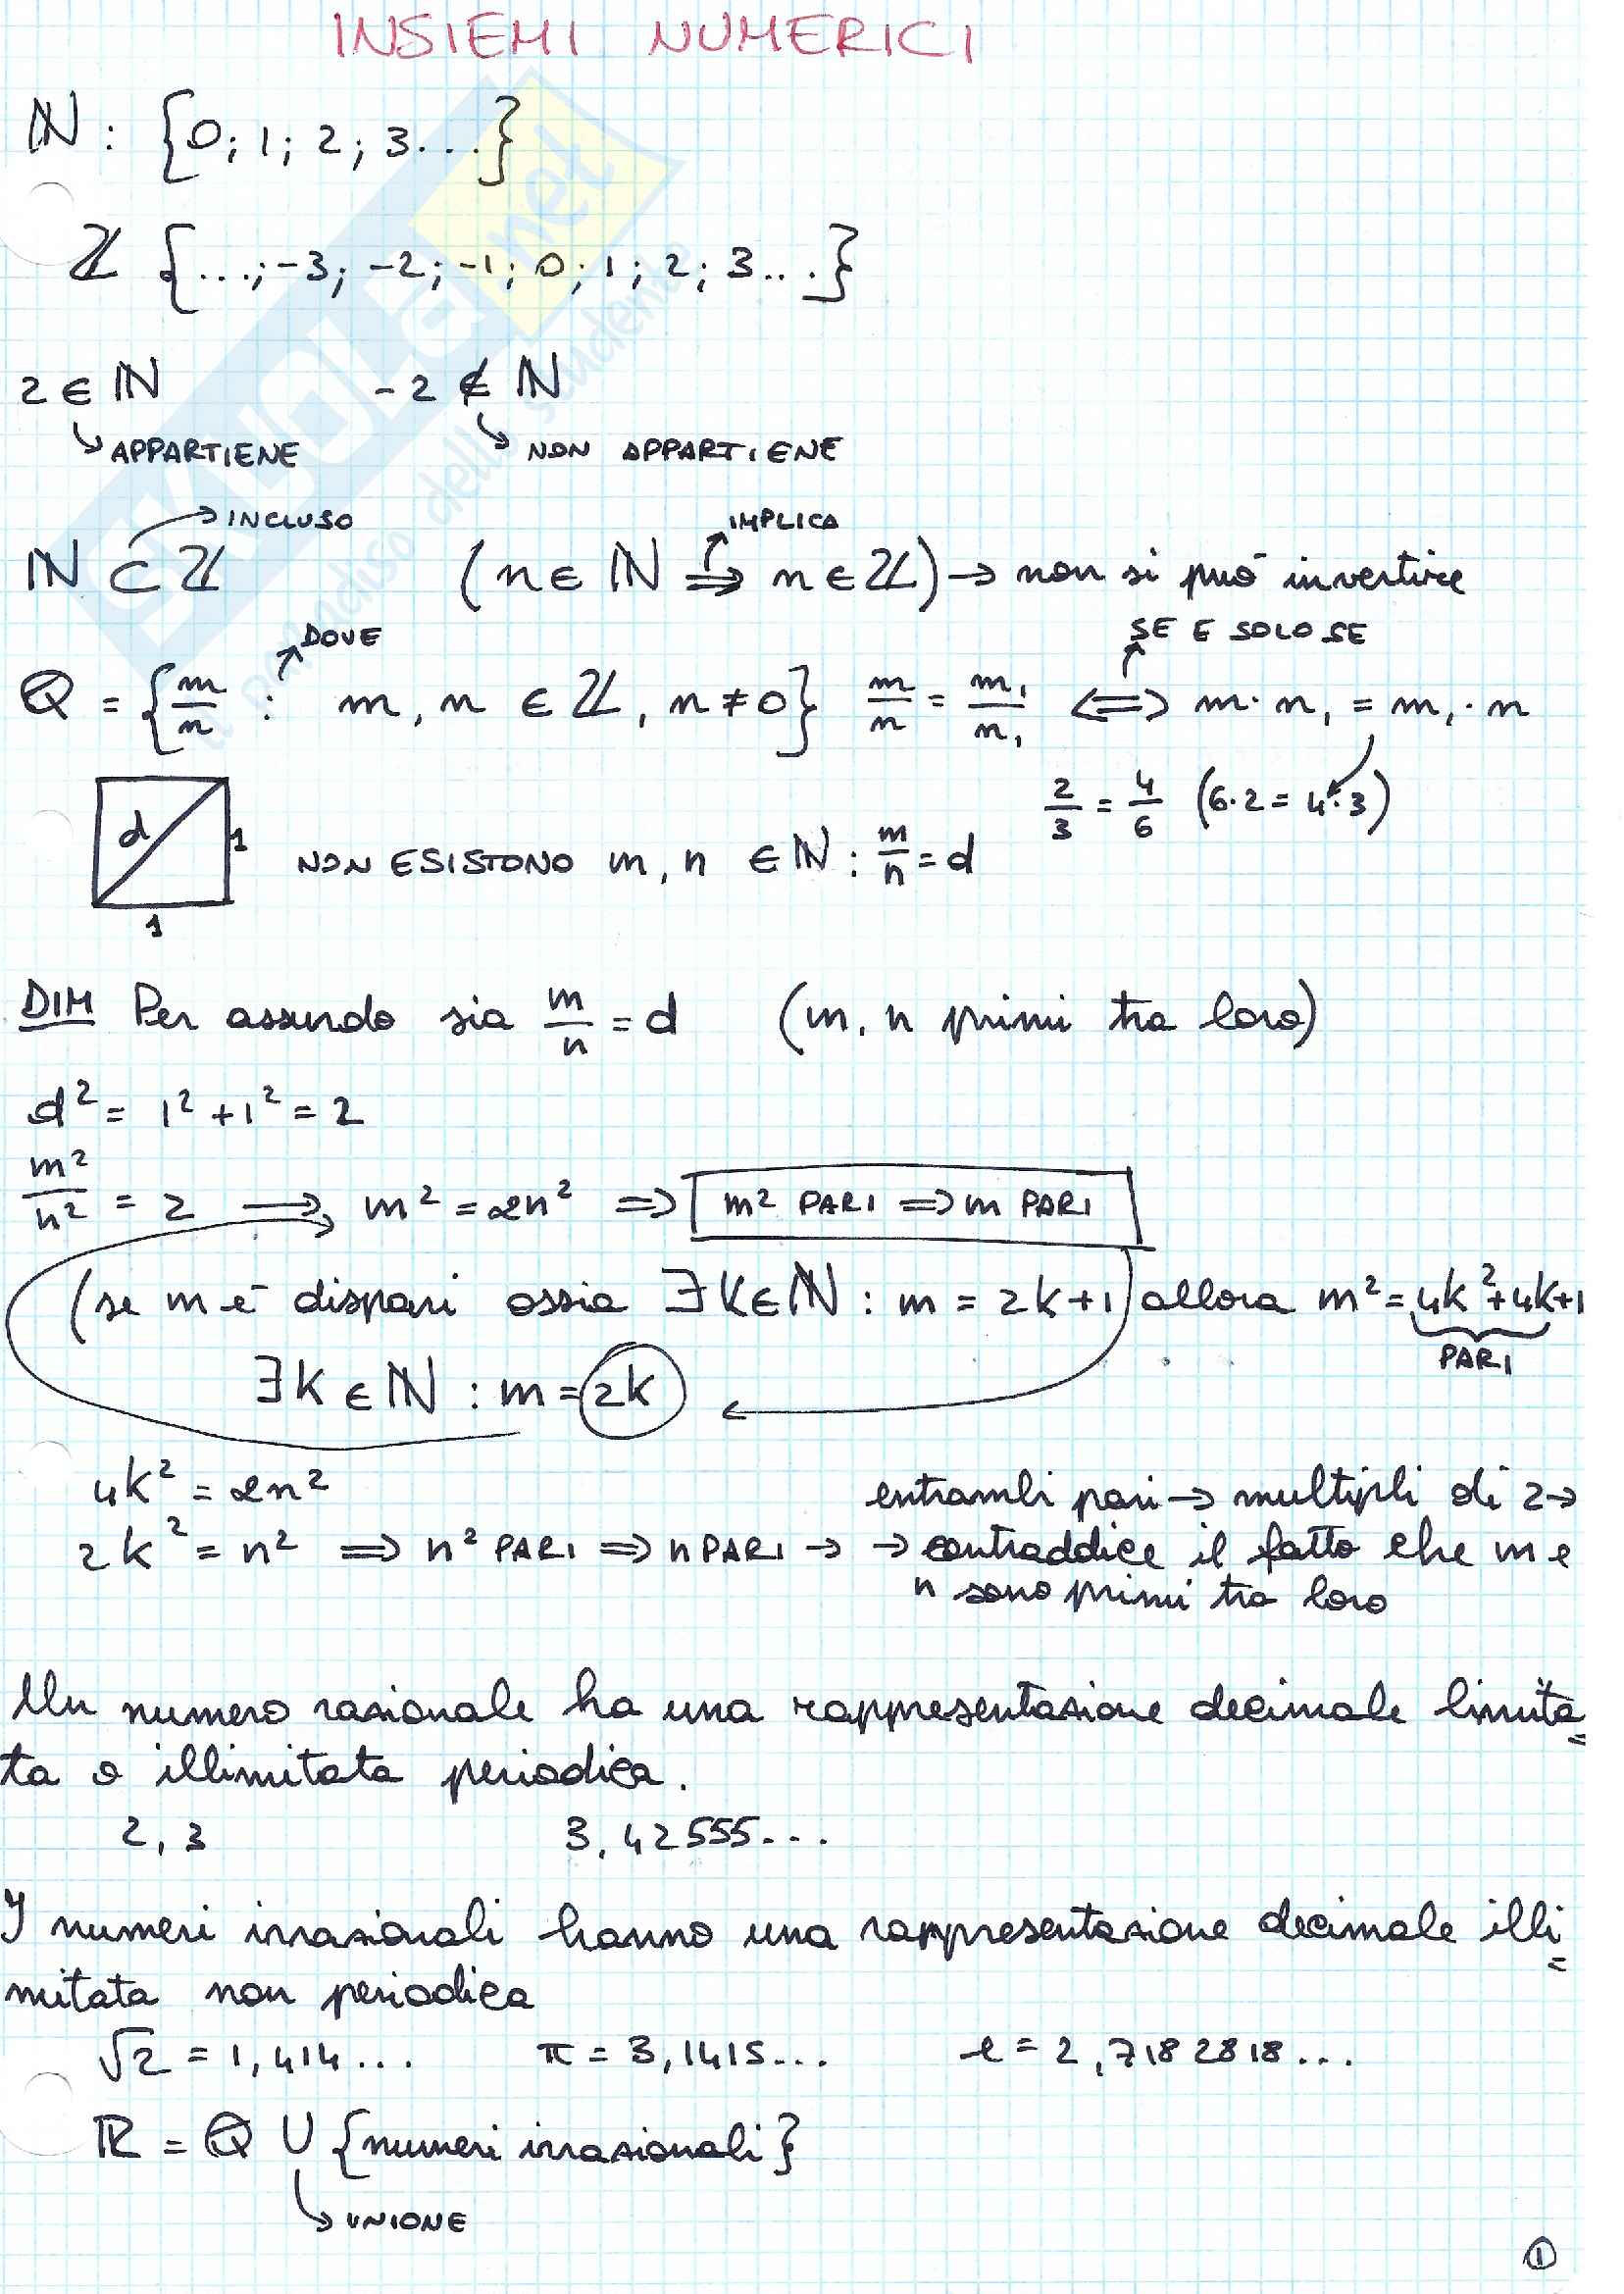 INSIEMI NUMERICI
ℕ : {0; 1; 2; 3...}
ℤ {...; -3; -2; -1; 0; 1; 2; 3...}
2 ∈ ℕ -2 ∉ ℕ
↳ APPARTIENE ↳ NON APPARTIENE
→ INCLUSO IMPLICA
ℕ ⊂ ℤ (n ∈ ℕ ⇒ n ∈ ℤ) → non si può invertire
DOVE SE E SOLO SE
ℚ = {m/n : m, n ∈ ℤ, n ≠ 0} m/n = m₁/n₁ ⇔ m·n₁ = m₁·n
2/3 = 4/6 (6·2 = 4·3)
d 1
NON ESISTONO m, n ∈ ℕ : m/n = d
1
DIM Per assurdo sia m/n = d (m, n primi tra loro)
d² = 1² + 1² = 2
m²/n² = 2 → m² = 2n² ⇒ m² PARI ⇒ m PARI
(se m è dispari ossia ∃ K ∈ ℕ : m = 2k+1) allora m² = 4k²+4k+1
PARI
∃ K ∈ ℕ : m = 2k
4k² = 2n²
2k² = n² ⇒ n² PARI ⇒ n PARI →
entrambi pari → multipli di 2 →
→ contraddice il fatto che m e
n sono primi tra loro
Un numero razionale ha una rappresentazione decimale limita=
ta o illimitata periodica.
2,3 3,42555...
I numeri irrazionali hanno una rappresentazione decimale illi=
mitata non periodica
√2 = 1,414... π = 3,1415... e = 2,7182818...
ℝ = ℚ ∪ {numeri irrazionali}
↳ UNIONE
1
SKUOLA.net
il paradiso dello studente